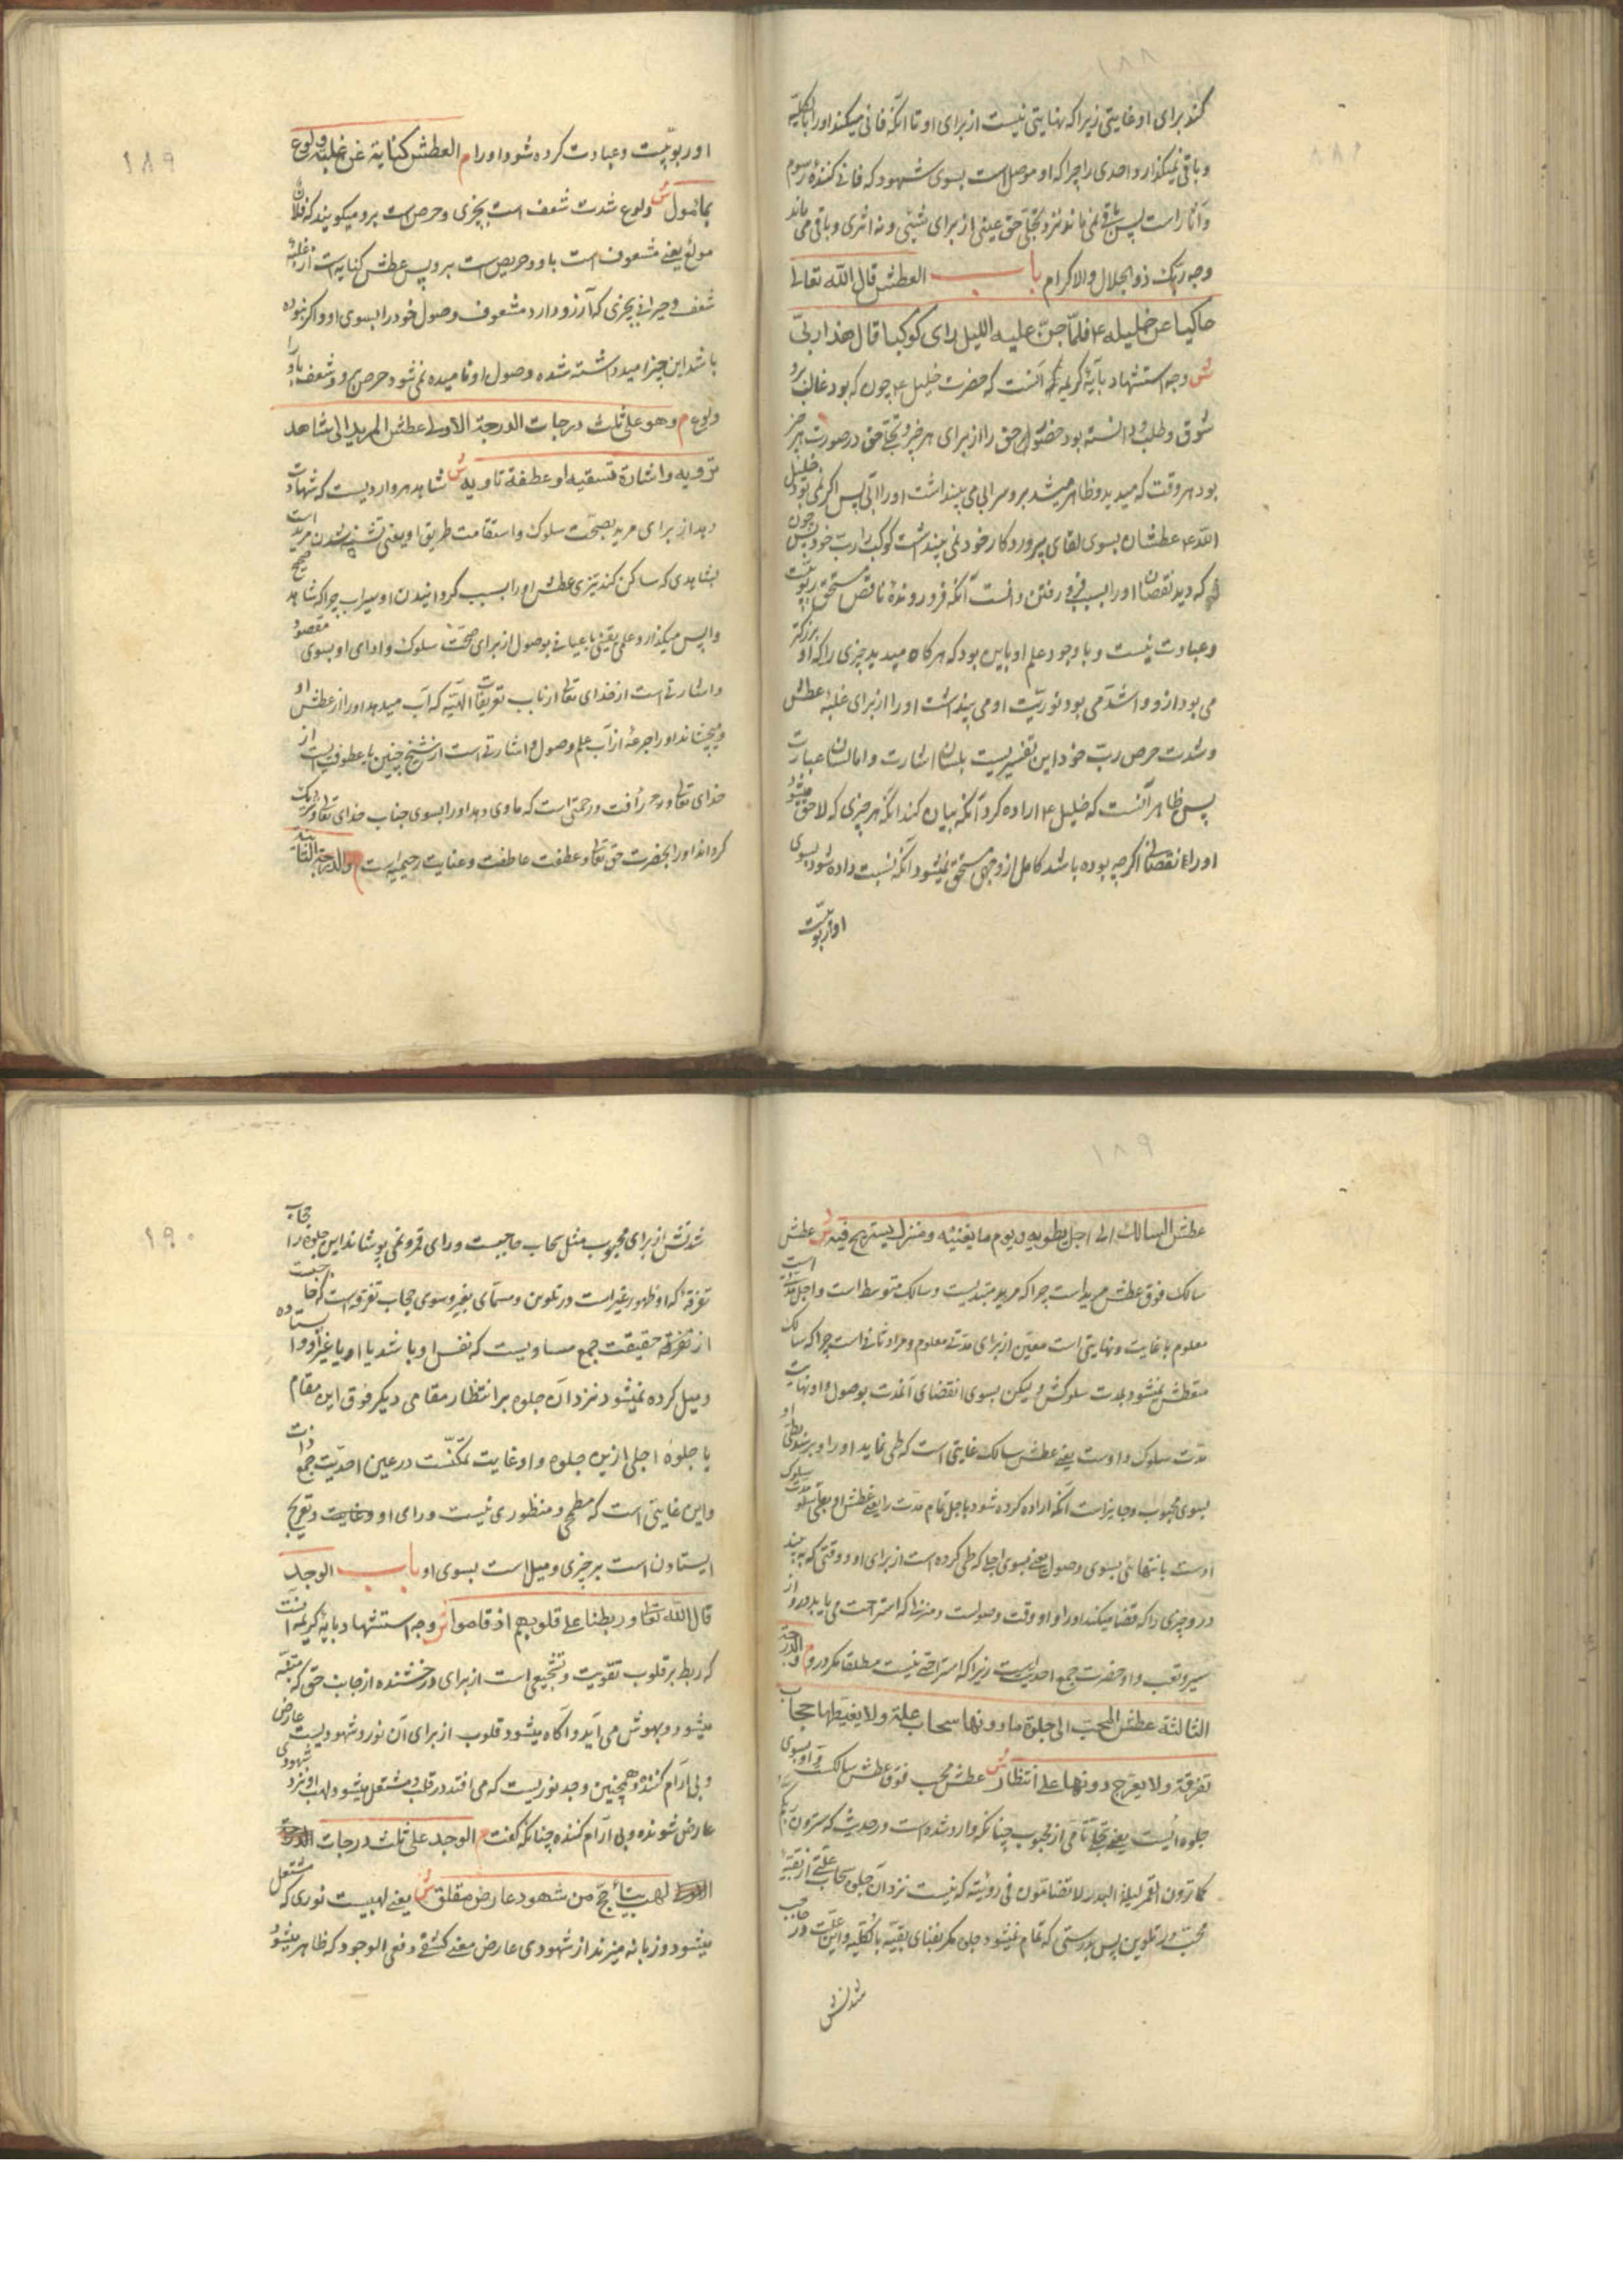 ۱۸۸
کند برای او غایتی زیرا که نهایتی نیست از برای او تا آنکه فانی میکند او را بالکلیّه
و باقی نمیکذارد احدی را چرا که او موصل است بسوی شهود که فانی کنندهٔ رسوم
و آثار است پس باقی نمی‌ماند نزد تجلّی حق عینی از برای شیئی و نه اثری و باقی می‌ماند
وجه ربّک ذو الجلال والاکرام باب العطش قال الله تعالی
حاکیا عن خلیله ع فلمّا جنّ علیه اللیل رای کوکبا قال هذا ربّی
ش وجه استشهاد بآیهٔ کریمه آنست که حضرت خلیل ع چون که بود غالب برو
شوق و طلب و دانسته بود حضور حق را از برای هر چیز و تجلّی حق در صورت هر چیز
بود هر وقت که میدید و ظاهر میشد برو سرابی می پنداشت او را آبی پس اگر نمی‌بود خلیل
الله ع عطشان بسوی لقای پروردکار خود نمی پنداشت کوکب را ربّ خود پس چون
که دید نقصان او را بسبب فرو رفتن دانست آنکه فرو روندهٔ ناقص مستحق ربوبیّت
و عبادت نیست و با وجود علم او باین بود که هرکاه میدید چیزی را که او بزرکتر
می بود از و و اشدّ می بود نوریّت او می پنداشت او را از برای غلبهٔ عطش
و شدت حرص ربّ خود این تفسیریست بلسان اشارت و اما لسان عبارت
پس ظاهر آنست که خلیل ع اراده کرد آنکه بیان کند آنکه هر چیزی که لاحق میشود
او را نقصانی اگرچه بوده باشد کامل از وجهی مستحق نمیشود آنکه نسبت داده شود بسوی
او ربوبیّت
۱۸۹
او ربوبیّت و عبادت کرده شود او را م العطش کنایة عن غلبة ولوع
بمأمول ش ولوع شدت شعف است بچیزی و حرص است برو میکویند که فلان
مولع یعنی مشعوف است باو و حریص است برو پس عطش کنایه است از غلبهٔ
شعف و حیرانی بچیزی که آرزو دارد مشعوف وصول خود را بسوی او و اکر نبوده
باشد این چیز امید داشته شده وصول او نامیده نمی شود حرص برو و شعف باو را
ولوع م وهو علی ثلث درجات الدرجة الاولی عطش المرید الی شاهد
ترویه واشارة تسقیه او عطفة تاویه ش شاهد هر واردیست که شهادت
دهد از برای مرید بصحّت سلوک و استقامت طریق او یعنی تشنه شدن مرید است
بشاهدی که ساکن کند تیزی عطش او را بسبب کردانیدن او سیراب چرا که شاهد صحیح
واپس میکذارد علمی یقینی یا عیانی بوصول از برای صحّت سلوک و ادای او بسوی مقصود
و اشارتی است از خدای تعالی از باب تعریفات الهیّه که آب میدهد او را از عطش او
و میچشاند او را جرعهٔ از آب علم وصول و اشارتی است از شیخ چنین یا عطوفتیست از
خدای تعالی و رحم رأفت و رحمتی است که ماوی دهد او را بسوی جناب خدای تعالی و نزدیک
کرداند او را بحضرت حق تعالی و عطفت عاطفت و عنایت رحیمیه است م والدرجة الثانیة
۱۸۹
عطش السالک الی اجل یطویه ویوم ما یغنیه ومنزل یستریح فیه ش عطش
سالک فوق عطش مرید است چرا که مرید مبتدیست و سالک متوسط است و اجل مدّت است
معلوم با غایت و نهایتی است معیّن از برای مدّتی معلوم و مراد ثانی است چرا که سالک
متعطش نمیشود بمدت سلوکش و لیکن بسوی انقضای آنمدت بوصول و او نهایت
مدّت سلوک و اوست یعنی عطش سالک غایتی است که طی نماید او را و برسد بطیّ او
بسوی محبوب و جایز است آنکه اراده کرده شود باجل تمام مدّت را یعنی عطش او بطیّ مدت سلوک
اوست بانتهایی بسوی وصول یعنی بسوی اجلی که طی کرده است از برای او و وقتی که به بیند
در و چیزی را که قضا میکند او را و او وقت وصولست و منزلی که استراحت می یابد درو از
سیر و تعب و او حضرت جمع احدیت است زیرا که استراحتی نیست مطلقا مکر درو م والدرجة
الثالثة عطش المحبّ الی جلوة ما دونها سحاب علة ولا یغیطها حجاب
تفرقة ولا یعرج دونها علی انتظار ش عطش محب فوق عطش سالک است و او بسوی
جلوه ایست یعنی تجلّی تامی از محبوب چنانکه وارد شده است در حدیث که سترون ربّکم
کما ترون القمر لیلة البدر لا تضامّون فی رؤیته که نیست نزد آن جلوه سحاب علّتی از بقیّهٔ
محبّ در تلوین پس بدرستی که تمام نمیشود جلوه مکر بفنای بقیّه بالکلّیه و این علّت در جانب محبّ
شدتش
۱۹۰
شدتش از برای محبوب مثل سحاب حاجبست ورای قمر و نمی پوشاند این جلوه را حجاب
تفرقه که او ظهور غیر است در تلوین و مسمّای بغیر و سوی حجاب تفرقه است که حاجبست
از تفرقه حقیقت جمع مساویست که نفس او باشد یا او یا غیر او و ایستاده
و میل کرده نمیشود نزد آن جلوه بر انتظار مقامی دیکر فوق این مقام
یا جلوهٔ اجلی ازین جلوه و او غایت تمکّنست در عین احدیّت جمع ذات
و این غایتی است که مطمحی و منظوری نیست ورای او و غایت و تعریج
ایستادن است بر چیزی و میل است بسوی او باب الوجد
قال الله تعالی وربطنا علی قلوبهم اذ قاموا ش وجه استشهاد بآیهٔ کریمه آنست
که ربط بر قلوب تقویت و تشجیعی است از برای درخشنده از جانب حق که متنبّه
میشود و بهوش می آید و آکاه میشود قلوب از برای آن نور و شهودیست عارض
و بی آرام کننده و همچنین وجد نوریست که می افتد در قلب و مشتعل میشود و لهب او نزد شهودی
عارض شونده و بی آرام کننده چنانکه کفت م الوجد علی ثلث درجات الدرجة
الاولی لهب یتأجّج من شهود عارض مقلق ش یعنی لهبیست نوری که مشتعل
میشود و زبانه میزند از شهودی عارض معنی کشفی دفعی الوجود که ظاهر میشود